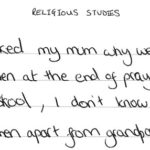 RELIGIOUS STUDIES
ked my mum why we
en at the end of pray
kool, I don't know
men apart from grandpa